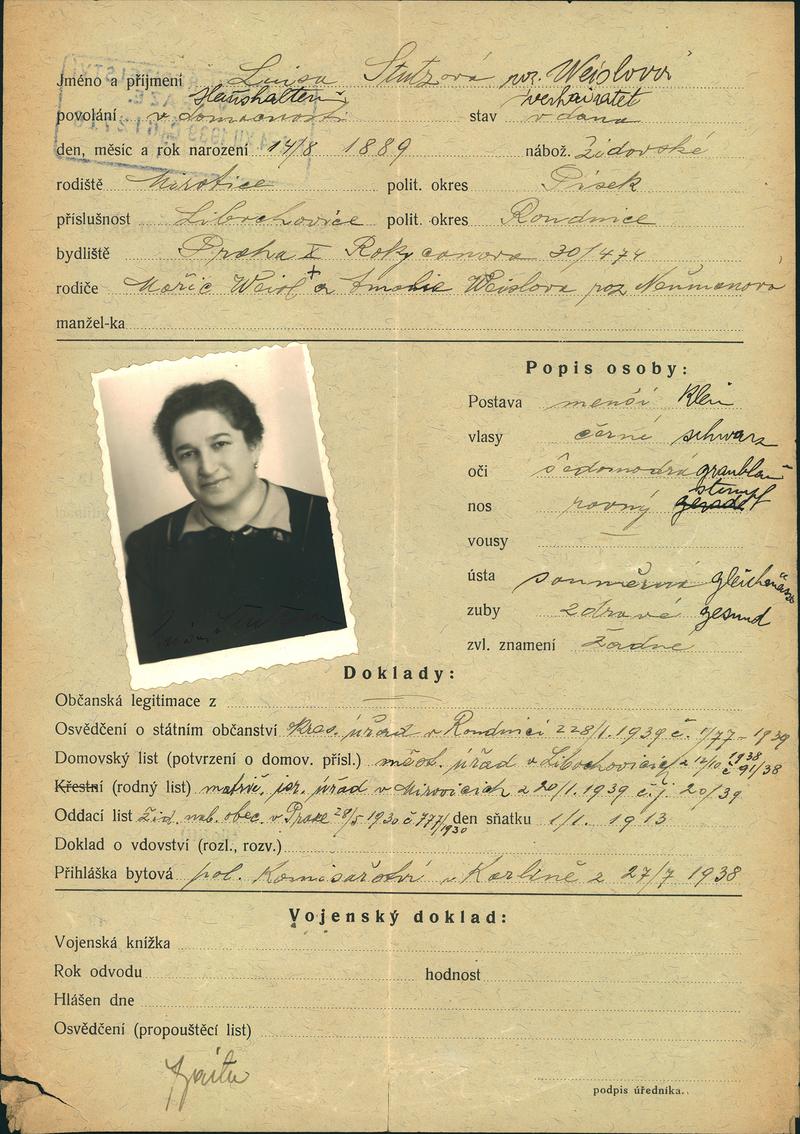 Jméno a příjmení Luisa Stutzová roz. Weislová
Haushalterin verheiratet
povolání v domácnosti stav vdaná
den, měsíc a rok narození 14/8 1889 nábož. židovské
rodiště Mirotice polit. okres Písek
příslušnost Libochovice polit. okres Roudnice
bydliště Praha X Rokycanova 30/474
rodiče Mořic Weisl + a Amalie Weislova roz Neumanová
manžel-ka
Popis osoby:
Postava menší Klein
vlasy černé schwarz
oči šedomodrá graublau
stumpf
nos rovný gerade
vousy —
ústa souměrná
zuby zdravé gesund
zvl. znamení žádné
Doklady:
Občanská legitimace z
Osvědčení o státním občanství okres. úřad v Roudnici z 28/1. 1939 č. 1/77 - 1939
Domovský list (potvrzení o domov. přísl.) měst. úřad v Libochovicích z 12/10 1938 č 91/38
Křestní (rodný list) matrič. isr. úřad v Mirovicích z 20/1. 1939 č.j. 20/39
Oddací list Žid. náb. obec. v Praze 28/5 1930 č 777/1930 den sňatku 1/1. 1913
Doklad o vdovství (rozl., rozv.)
Přihláška bytová pol. Komisařství v Karlíně z 27/7 1938
Vojenský doklad:
Vojenská knížka
Rok odvodu hodnost
Hlášen dne
Osvědčení (propouštěcí list)
podpis úředníka.